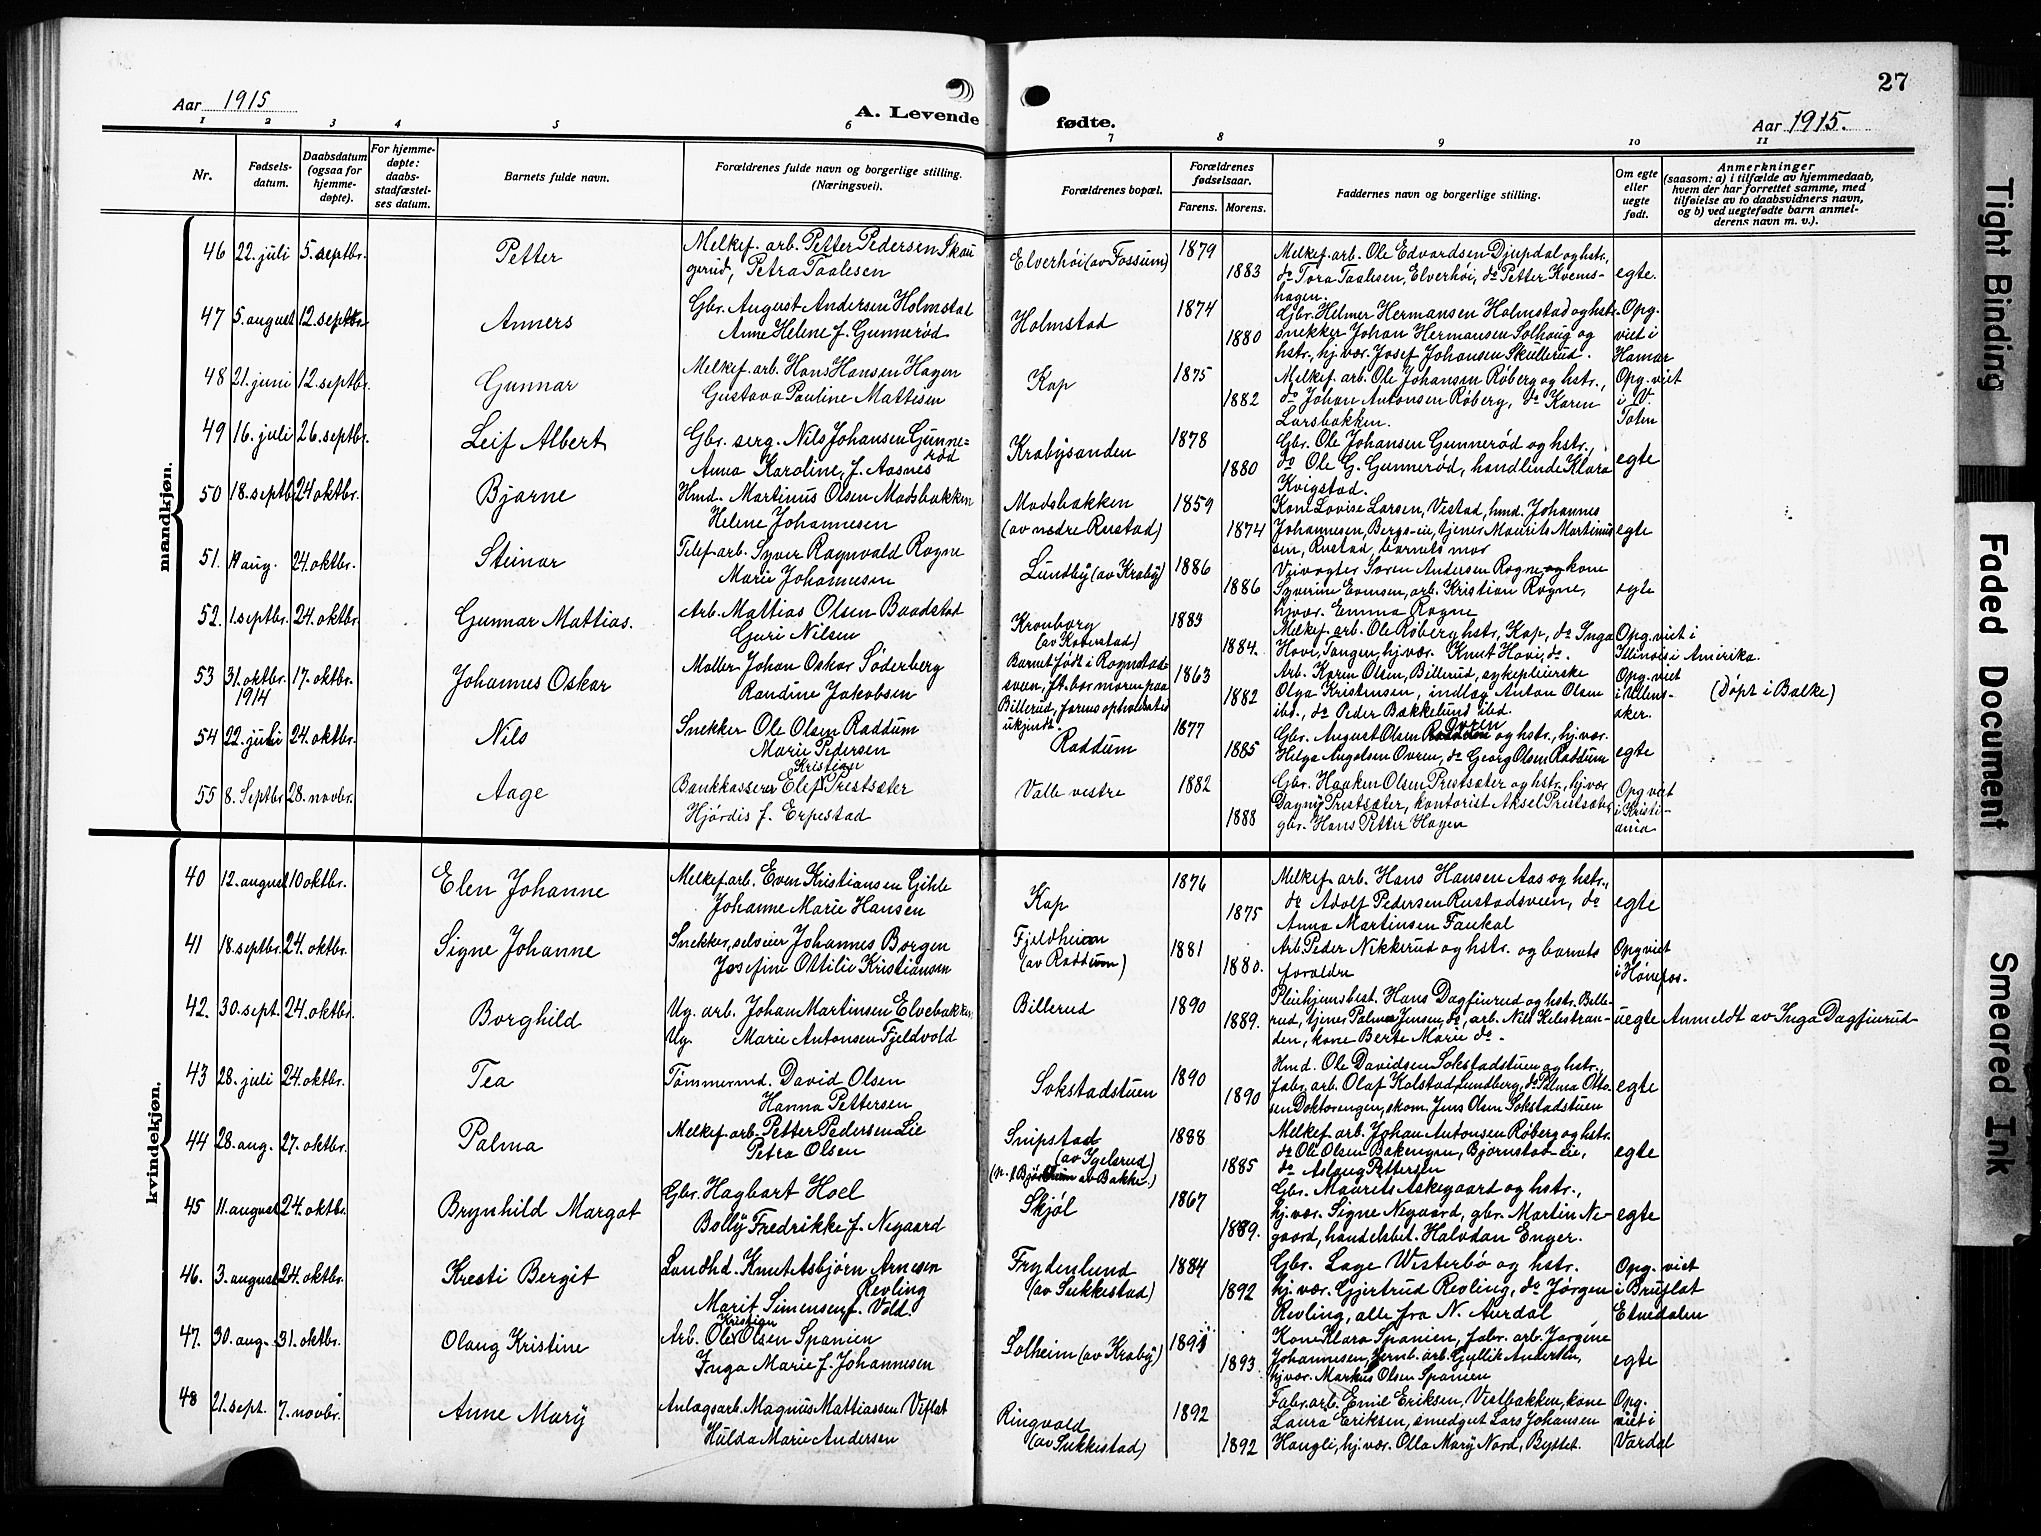 27
Aar 1915
A. Levende
fødte.
Aar 1915.
1 2 3 4 5 6 7 8 9 10 11
Nr.
Fødsels-
datum.
Daabsdatum
(ogsaa for
hjemme-
døpte).
For hjemme-
døpte:
daabs-
stadfæstel-
ses datum.
Barnets fulde navn.
Forældrenes fulde navn og borgerlige stilling.
(Næringsvei).
Forældrenes bopæl.
Forældrenes
fødselsaar.
Farens. Morens.
Faddernes navn og borgerlige stilling.
Om egte
eller
uegte
født.
Anmerkninger
(saasom: a) i tilfælde av hjemmedaab,
hvem der har forrettet samme, med
tilføielse av to daabsvidners navn,
og b) ved uegtefødte barn anmel-
derens navn m. v.).
mandkjøn.
46 22. juli 5. septbr. Petter
Melkef. arb. Petter Pedersen Skau
gerud, Petra Taalesen
Elverhöi (av Fossum)
1879
1883
Melkef. arb. Ole Edvardsen Djupdal og hstr.,
do Tora Taalesen, Elverhöi, do Petter Kvems-
hagen.
egte.
47 5. august 12. septbr Anners
Gbr. August Andersen Holmstad
Anne Helene f. Gunnerød
Holmstad
1874
1880
Gbr. Helmer Hermansen Holmstad og hstr.
snekker Johan Hermansen Solhaug og
hstr., hj. vær. Josef Johansen Skullerud.
Opg.
viet i
Hamar
48 21. juni 12. septbr. Gunnar
Melkef. arb. Hans Hansen Hagen
Gustava Pauline Mattesen
Kap
1875
1882
Melkef. arb. Ole Johansen Røberg og hstr.,
do Johan Antonsen Røberg, do Karen
Larsbakken.
Opg. viet
i V.
Toten
49 16. juli 26. septbr. Leif Albert
Gbr. serg. Nils Johansen Gunne=
rød
Anna Karoline, f. Aasnes
Krabysanden
1878
1880
Gbr. Ole Johansen Gunnerød og hstr.,
do Ole G. Gunnerød, handlende Klara
Kvigstad.
egte
50 18. septbr 24 oktbr. Bjarne
Hmd. Martinus Olsen Madsbakken
Helene Johannesen
Madsbakken
(av nedre Rustad)
1859
1874
Kone Lovise Larsen, Vestad, hmd. Johannes
Johannesen, Bergs-eie, tjener Maurits Martinus
sen, Rustad, barnets mor
egte
51. aug. 24. oktbr. Steinar
Telef. arb. Syver Ragnvald Rogne
Marie Johannesen
Lundby (av Kraby)
1886
1886
Veivogter Søren Andersen Rogne og kone
Syverine Evensen, arb. Kristian Rogne,
hj. vær. Emma Rogne
egte
52. 1. septbr. 24. oktbr. Gunnar Mattias.
Arb. Mattias Olsen Baadstad
Guri Nilsen
Kronborg
(av Kaverstad)
1883
1884.
Melkef. arb. Ole Røberg hstr., Kap, do Inga
Hovi, Tangen, hj. vær. Knut Hovi, do.
Opg. viet i
Illinois i Amerika.
53 31. oktbr. 17. oktbr. Johannes Oskar
1914
Maller Johan Oskar Söderberg
Randine Jakobsen
Barnet født i Rognstad-
sveen, ft. bor moren paa
Billerud, farens opholdssted
ukjendt.
1863
1882
Arb. Karen Olsen, Billerud, sykepleierske
Olga Kristensen, indlæg Anton Olsen
ibd., do Peder Bækkelund ibd.
Opg. viet
i Ullens-
aker.
(Døpt i Balke)
54 22. juli 24. oktbr. Nils
Snekker Ole Olsen Raddum
Marie Pedersen
Raddum
1877
1885
Ovren
Gbr. August Olsen Raddum og hstr., hj. vær.
Helga Augolsen Ovren, do Georg Olsen Raddum
egte
55 8. Septbr 28. novbr. Aage
Kristian
Bankkasserer Elef Prestsæter
Hjördis f. Erpestad
Valle vestre
1882
1888
Gbr. Haaken Olsen Prestsæter og hstr., hj. vær
Dagny Prestsæter, kontorist Aksel Prestsæter,
gbr. Hans Petter Hagen
Opg viet
i Kristi-
ania
kvindekjøn.
40 12. august 10 oktbr. Elen Johanne
Melkef. arb. Even Kristiansen Gihle
Johanne Marie Hansen
Kap
1876
1875
Melkef. arb. Hans Hansen Aas og hstr.,
do Adolf Pedersen Rustadsveen, do
Anna Martinsen Faukal
egte
41 18. septbr. 24. oktbr. Signe Johanne
Snekker, selveier Johannes Borgen
Josefine Ottilie Kristiansen
Fjeldheim
(av Raddum)
1881
1880.
Arb. Peder Nikkerud og hstr. og barnets
forældre
Opg viet
i Hønefos.
42. 30. sept. 24. oktbr. Borghild
Ug. arb. Johan Martinsen Elvebakken
Ug. Marie Antonsen Fjeldvold
Billerud
1890
1889.
Pleiehjemsbest. Hans Dagfinrud og hstr. Bille-
rud, tjener Palma Jensen, do, arb. Nils Kilestran-
den, kone Berte Marie do.
uegte
Anmeldt av Inga Dagfinrud
43 28. juli 24. oktbr. Tea
Tømmermd. David Olsen
Hanna Pettersen
Sokstadstuen
1890
1890
Hmd. Ole Davidsen Sokstadstuen og hstr.,
fabr. arb. Olaf Kolstad, Lundberg, do Palma Otto-
sen Doktorengen, skom. Jens Olsen Sokstadstuen
egte
44 28. aug. 27. oktbr. Palma
Melkef. arb. Petter Pedersen Lie
Petra Olsen
Snipstad
(av Igelsrud)
1888
1885
Melkef. arb. Johan Antonsen Røberg og hstr.
do Ole Olsen Bakengen, Bjørnstad-eie,
do Aslaug Pettersen
egte
45 11. august 24. oktbr. Brynhild Margot
Gbr. Hagbart Hoel
Bolly Fredrikke f. Negaard
Skjøl
1867
1889.
Gbr. Maurits Askegaard og hstr.,
hj. vær. Signe Negaard, gbr. Martin Ne-
gaard, handelsbet. Halvdan Enger.
egte
46. 3. august 24. oktbr. Kresti Bergit
Landhd. Knut Asbjørn Arnesen
Revling
Marit Simensen f. Vold.
Frydenlund
(av Sukkestad)
1884
1892
Gbr. Lage Vesterbø og hstr.
hj. vær. Gjertrud Revling, do Jørgen
Revling, alle fra N. Aurdal
Opg. viet
i Bruflat
Etnedalen
47. 30. aug. 31. oktbr. Olaug Kristine
Kristian
Arb. Ole Olsen Spanien
Inga Marie f. Johannesen
Solheim (av Kraby)
1891
1893.
Kone Klara Spanien, fabr. arb. Jørgine
Johannesen, jernb. arb. Gullik Andersen,
hj. vær. Markus Olsen Spanien
egte
48 21. sept. 7. novbr. Anne Mary
Anlægsarb. Magnus Mattiassen Viflat
Hulda Marie Andersen
Ringvold
(av Sukkestad)
1892
1892
Fabr. arb. Emil Eriksen, Vestbakken, kone
Laura Eriksen, smedgut Lars Johansen
Haugli, hj. vær. Olla Mary Nord, Byttet.
Opg.
viet i
Vardal
Tight Binding
Faded Document
Smeared Ink